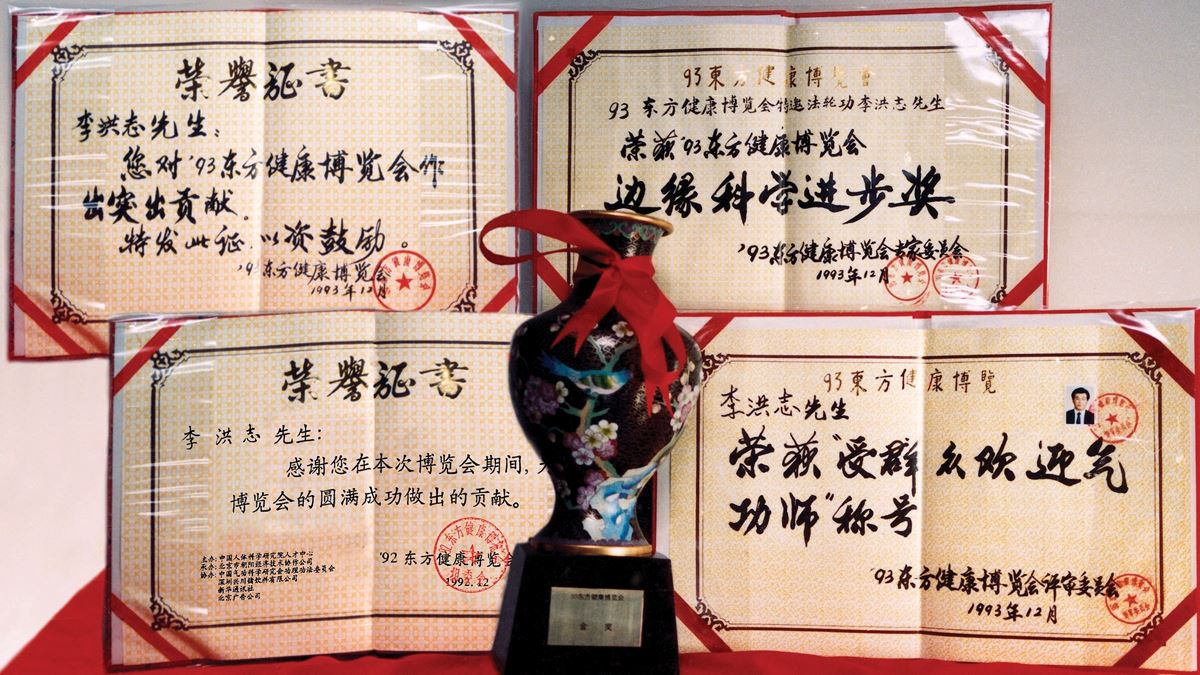 荣誉证书
李洪志先生：
您对'93东方健康博览会作
出突出贡献。
特发此证，以资鼓励。
'93东方健康博览会
1993年12月
93東方健康博覽會
93 东方健康博览会特邀法轮功李洪志先生
荣获'93东方健康博览会
边缘科学进步奖
'93东方健康博览会专家委员会
1993年12月
荣誉证书
李洪志先生：
感谢您在本次博览会期间，
博览会的圆满成功做出的贡献。
主办：中国人体科学研究院人才中心
承办：北京市朝阳经济技术协作公司
协办：中国气功科学研究会功理功法委员会
新华通讯社
北京广告公司
'92 东方健康博览会
1992.12
93東方健康博覽
李洪志先生
荣获“受群众欢迎气
功师”称号
'93东方健康博览会评审委员会
1993年12月
93东方健康博览会
金奖